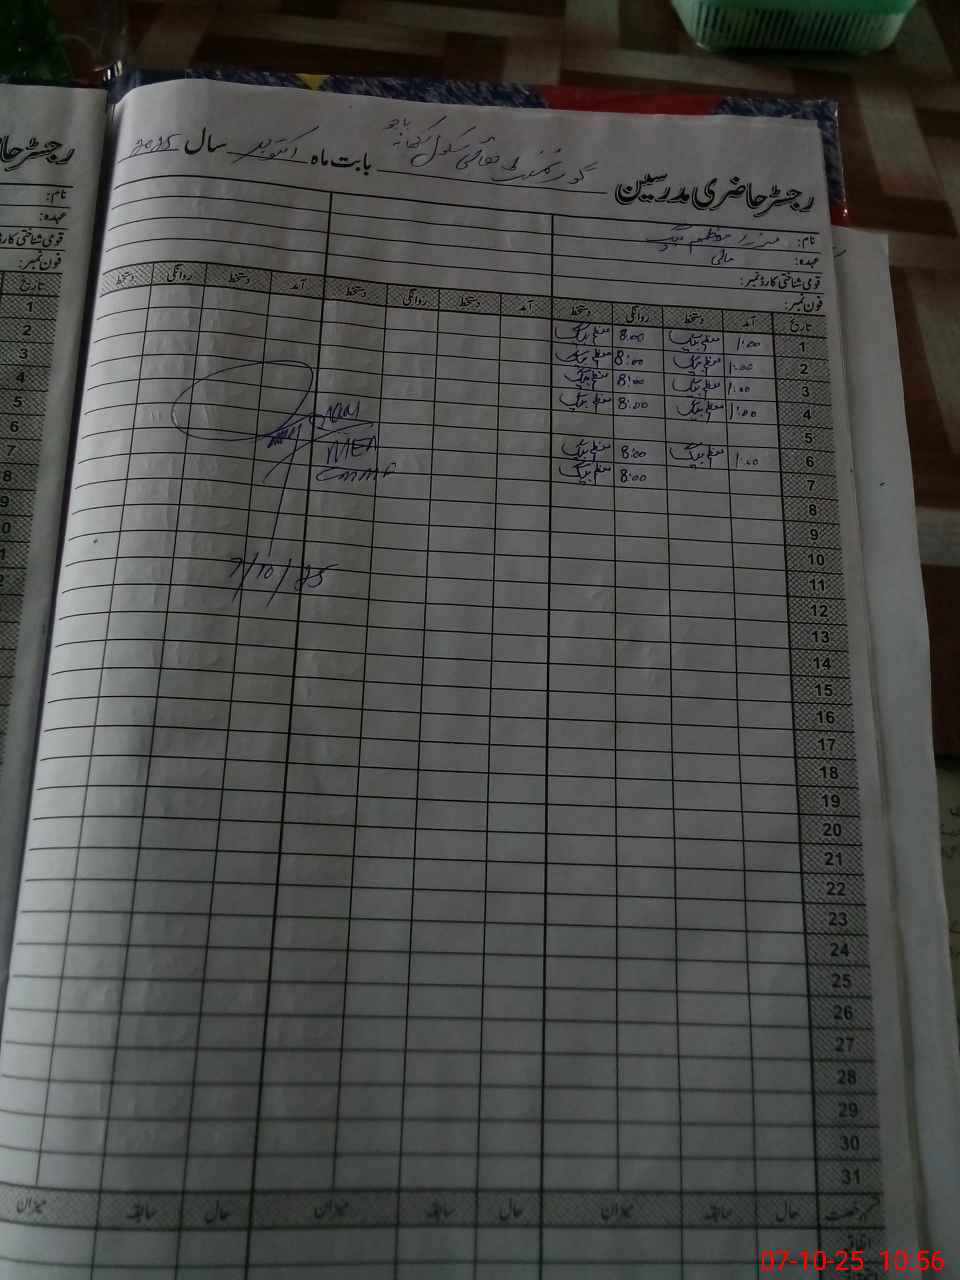 رجسٹر حاضری مدرسین گورنمنٹ ہائی سکول بابت ماہ اکتوبر سال 2025
نام: مرزا معظم بیگ
عہدہ: مالی
قومی شناختی کارڈ نمبر:
فون نمبر:
تاریخ آمد دستخط روانگی دستخط آمد دستخط روانگی دستخط آمد دستخط روانگی دستخط
1 1:00 معظم بیگ 8:00 معظم بیگ
2 1:00 معظم بیگ 8:00 معظم بیگ
3 1:00 معظم بیگ 8:00 معظم بیگ
4 1:00 معظم بیگ 8:00 معظم بیگ
5
6 1:00 معظم بیگ 8:00 معظم بیگ
7 8:00 معظم بیگ
MEA
8
9
10
7/10/25
11
12
13
14
15
16
17
18
19
20
21
22
23
24
25
26
27
28
29
30
31
قسم رخصت حال سابقہ میزان حال سابقہ میزان حال سابقہ میزان
اتفاقیہ
رجسٹر حا
نام:
عہدہ:
قومی شناختی کارڈ
فون نمبر:
تاریخ
1
2
3
4
5
6
7
8
9
07-10-25 10:56